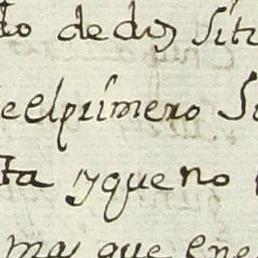 to de dos siti
e el primero s
ta y que no
ma que ene